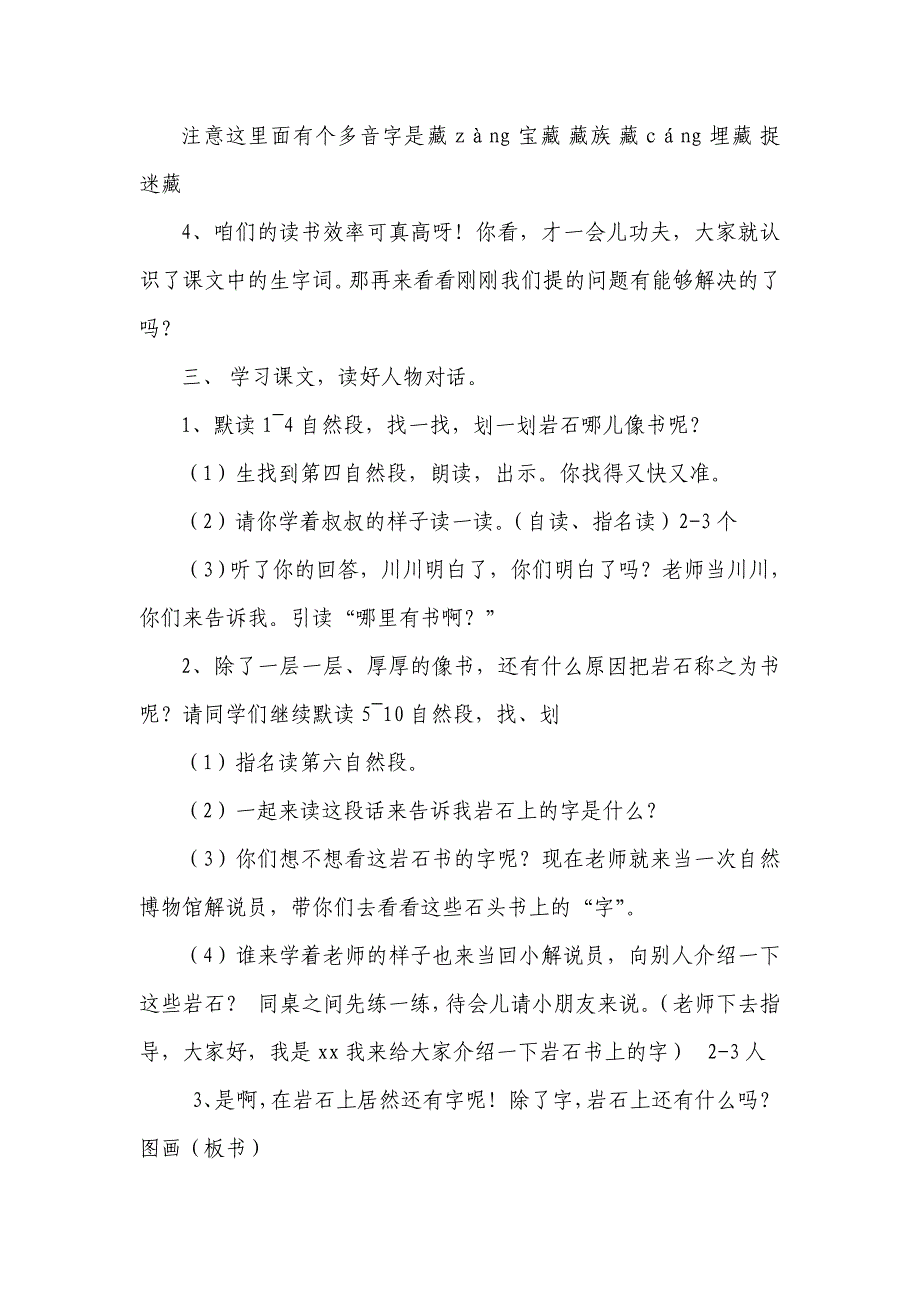 注意这里面有个多音字是藏 zàng 宝藏 藏族 藏 cáng 埋藏 捉
迷藏
4、咱们的读书效率可真高呀！你看，才一会儿功夫，大家就认
识了课文中的生字词。那再来看看刚刚我们提的问题有能够解决的了
吗？
三、 学习课文，读好人物对话。
1、默读 1¯4 自然段，找一找，划一划岩石哪儿像书呢？
（1）生找到第四自然段，朗读，出示。你找得又快又准。
（2）请你学着叔叔的样子读一读。（自读、指名读）2-3 个
（3）听了你的回答，川川明白了，你们明白了吗？老师当川川，
你们来告诉我。引读“哪里有书啊？”
2、除了一层一层、厚厚的像书，还有什么原因把岩石称之为书
呢？请同学们继续默读 5¯10 自然段，找、划
（1）指名读第六自然段。
（2）一起来读这段话来告诉我岩石上的字是什么？
（3）你们想不想看这岩石书的字呢？现在老师就来当一次自然
博物馆解说员，带你们去看看这些石头书上的“字”。
（4）谁来学着老师的样子也来当回小解说员，向别人介绍一下
这些岩石？ 同桌之间先练一练，待会儿请小朋友来说。（老师下去指
导，大家好，我是 xx 我来给大家介绍一下岩石书上的字） 2-3 人
3、是啊，在岩石上居然还有字呢！除了字，岩石上还有什么吗？
图画（板书）